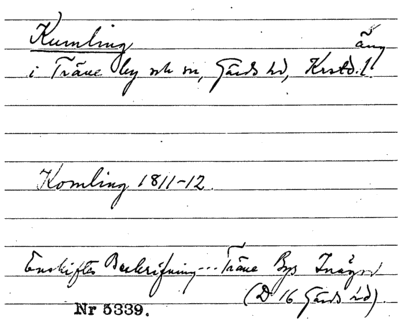 Kumling äng
i Träne by och sn, Gärds hd, Krstd. l.
Komling 1811-12.
Enskiftes Beskrifning... Träne Bys Inägor
(D 16 Gärds hd).
Nr 5339.